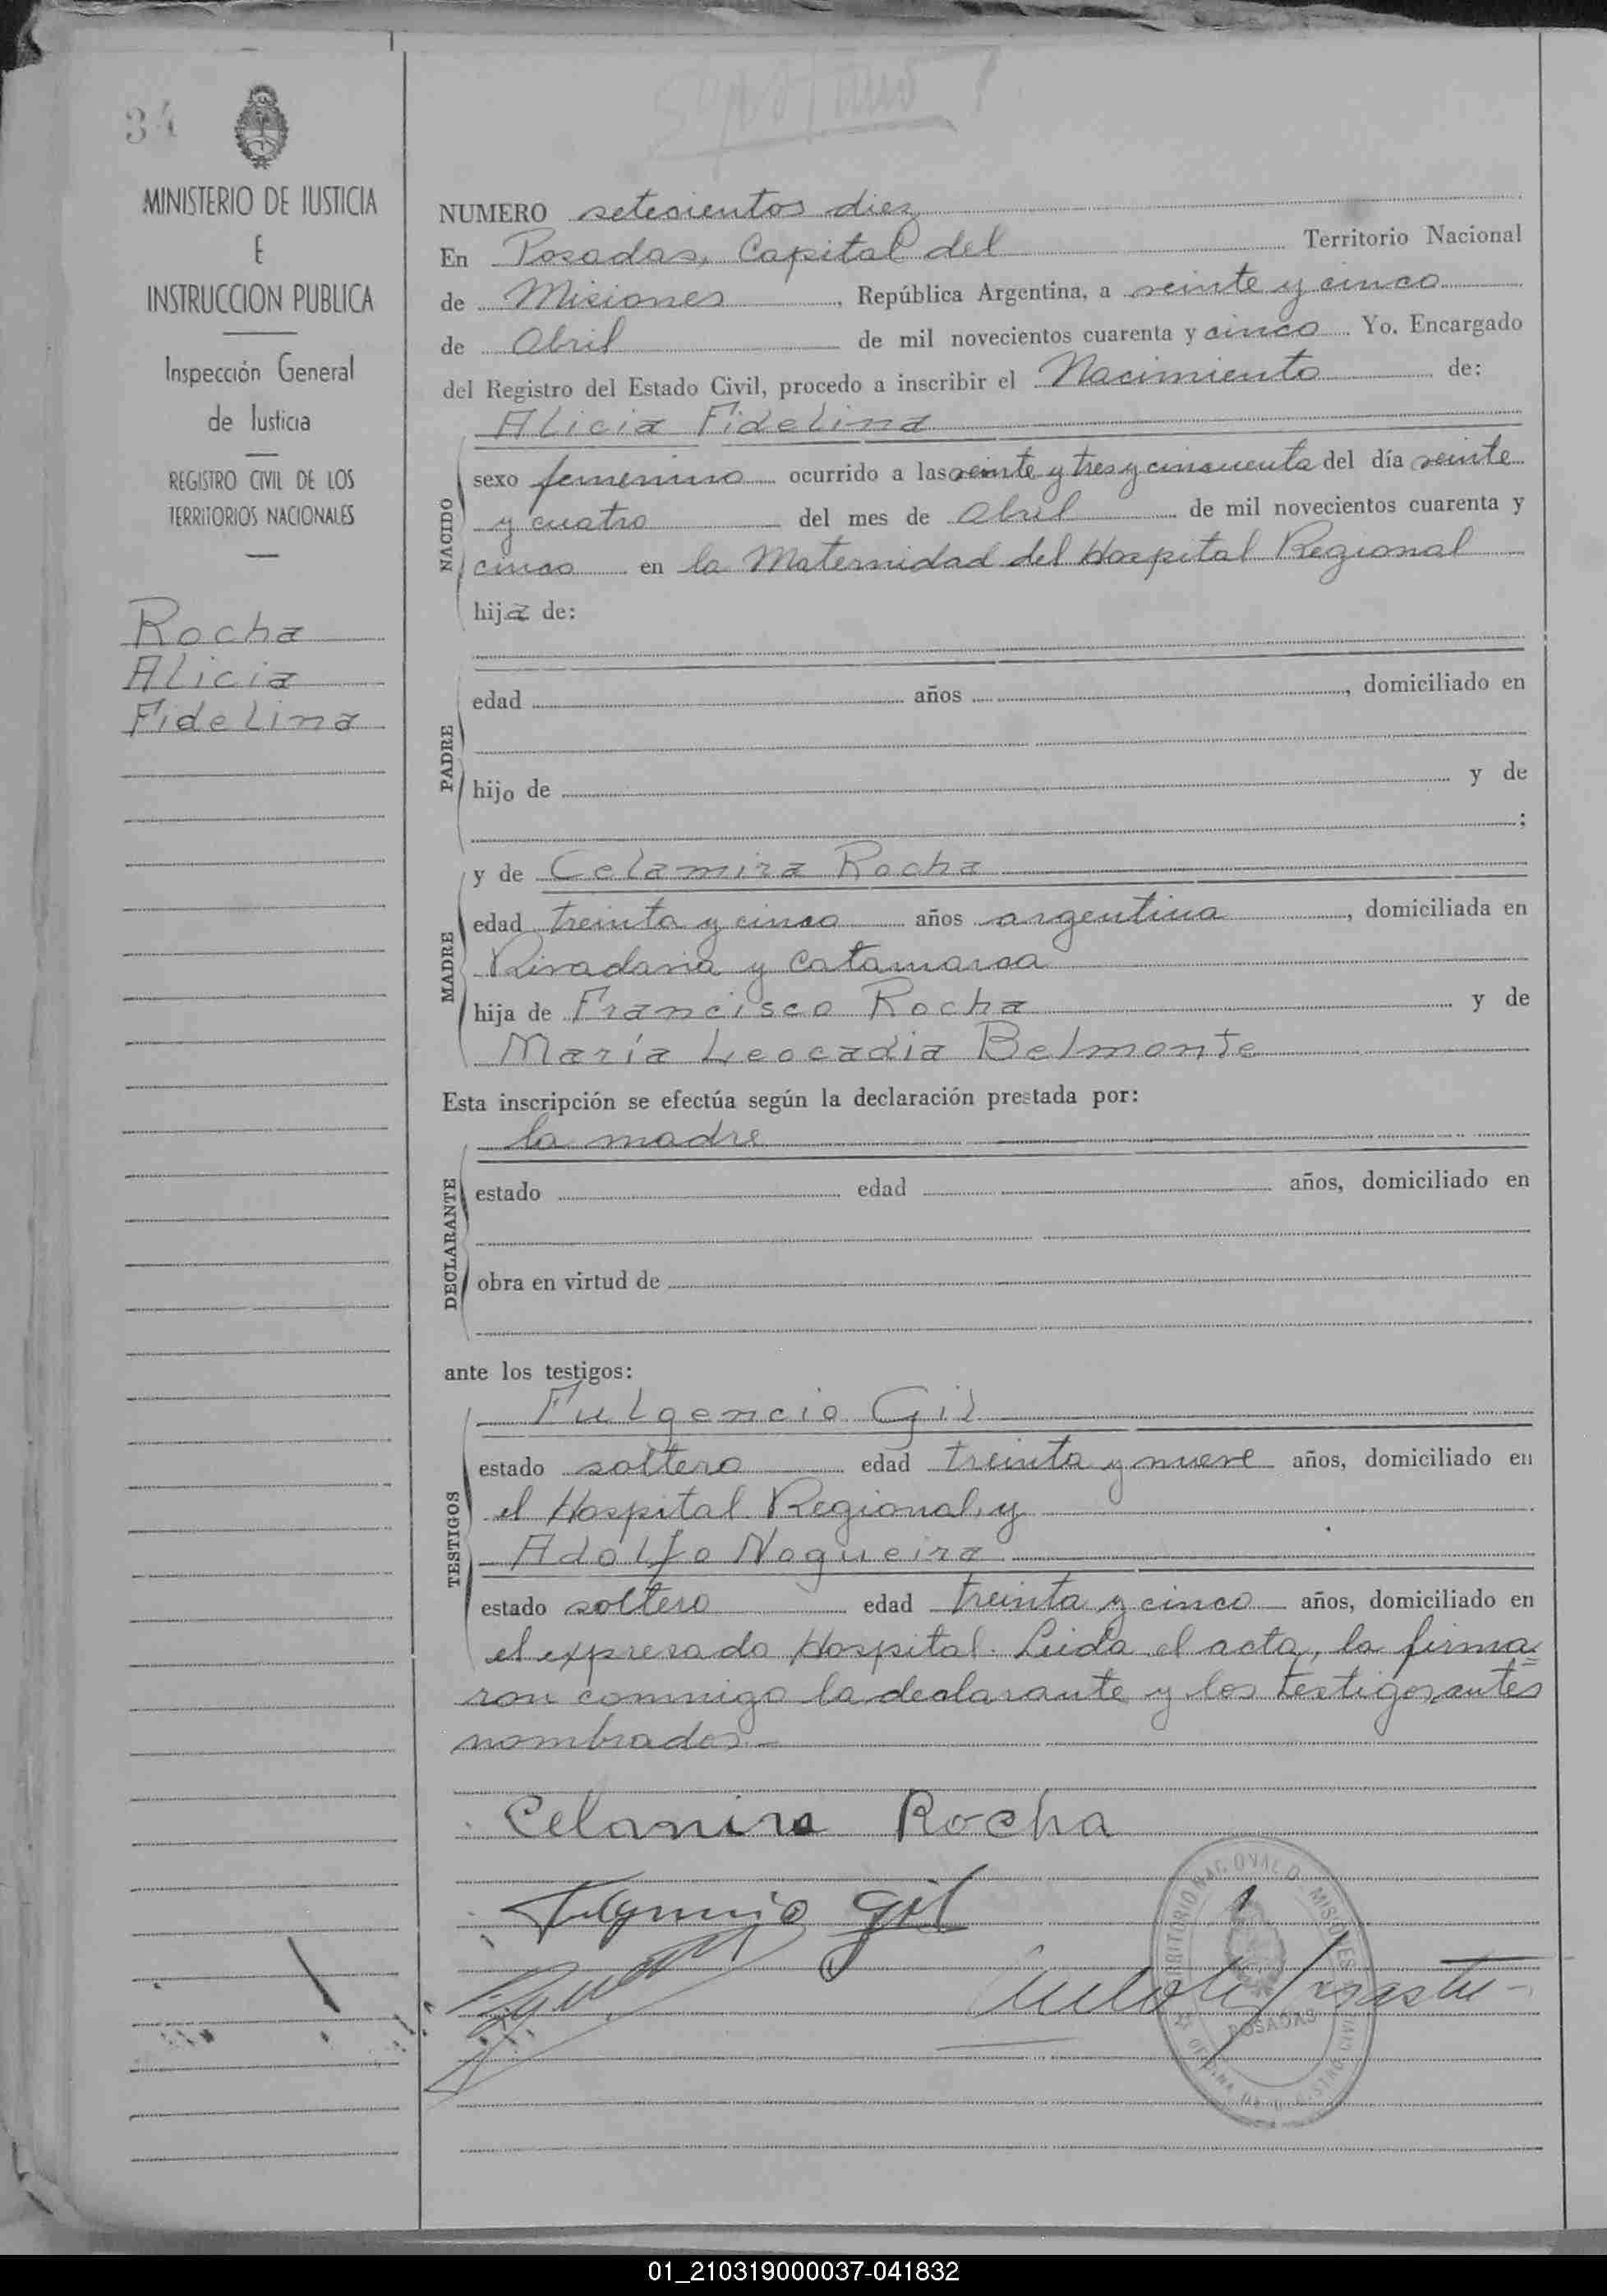 34
MINISTERIO DE JUSTICIA
E
INSTRUCCION PUBLICA
Inspección General
de Justicia
REGISTRO CIVIL DE LOS
TERRITORIOS NACIONALES
Rocha
Alicia
Fidelina
NUMERO setecientos diez
En Posadas, Capital del Territorio Nacional
de Misiones, República Argentina, a veinte y cinco
de Abril de mil novecientos cuarenta y cinco Yo. Encargado
del Registro del Estado Civil, procedo a inscribir el Nacimiento de:
NACIDO
Alicia Fidelina
sexo femenino ocurrido a las veinte y tres y cincuenta del día veinte
y cuatro del mes de Abril de mil novecientos cuarenta y
cinco en la Maternidad del Hospital Regional
hija de:
PADRE
edad años , domiciliado en
hijo de y de
;
MADRE
y de Celamira Rocha
edad treinta y cinco años argentina, domiciliada en
Rivadavia y Catamarca
hija de Francisco Rocha y de
María Leocadia Belmonte
Esta inscripción se efectúa según la declaración prestada por:
DECLARANTE
la madre
estado edad años, domiciliado en
obra en virtud de
ante los testigos:
TESTIGOS
Fulgencio Gil
estado soltero edad treinta y nueve años, domiciliado en
el Hospital Regional, y
Adolfo Nogueira
estado soltero edad treinta y cinco años, domiciliado en
el expresado Hospital. Leida el acta, la firma=
ron conmigo la declarante y los testigos antes
nombrados.-
Celamira Rocha
Fulgencio Gil
POSADAS
01_210319000037-041832